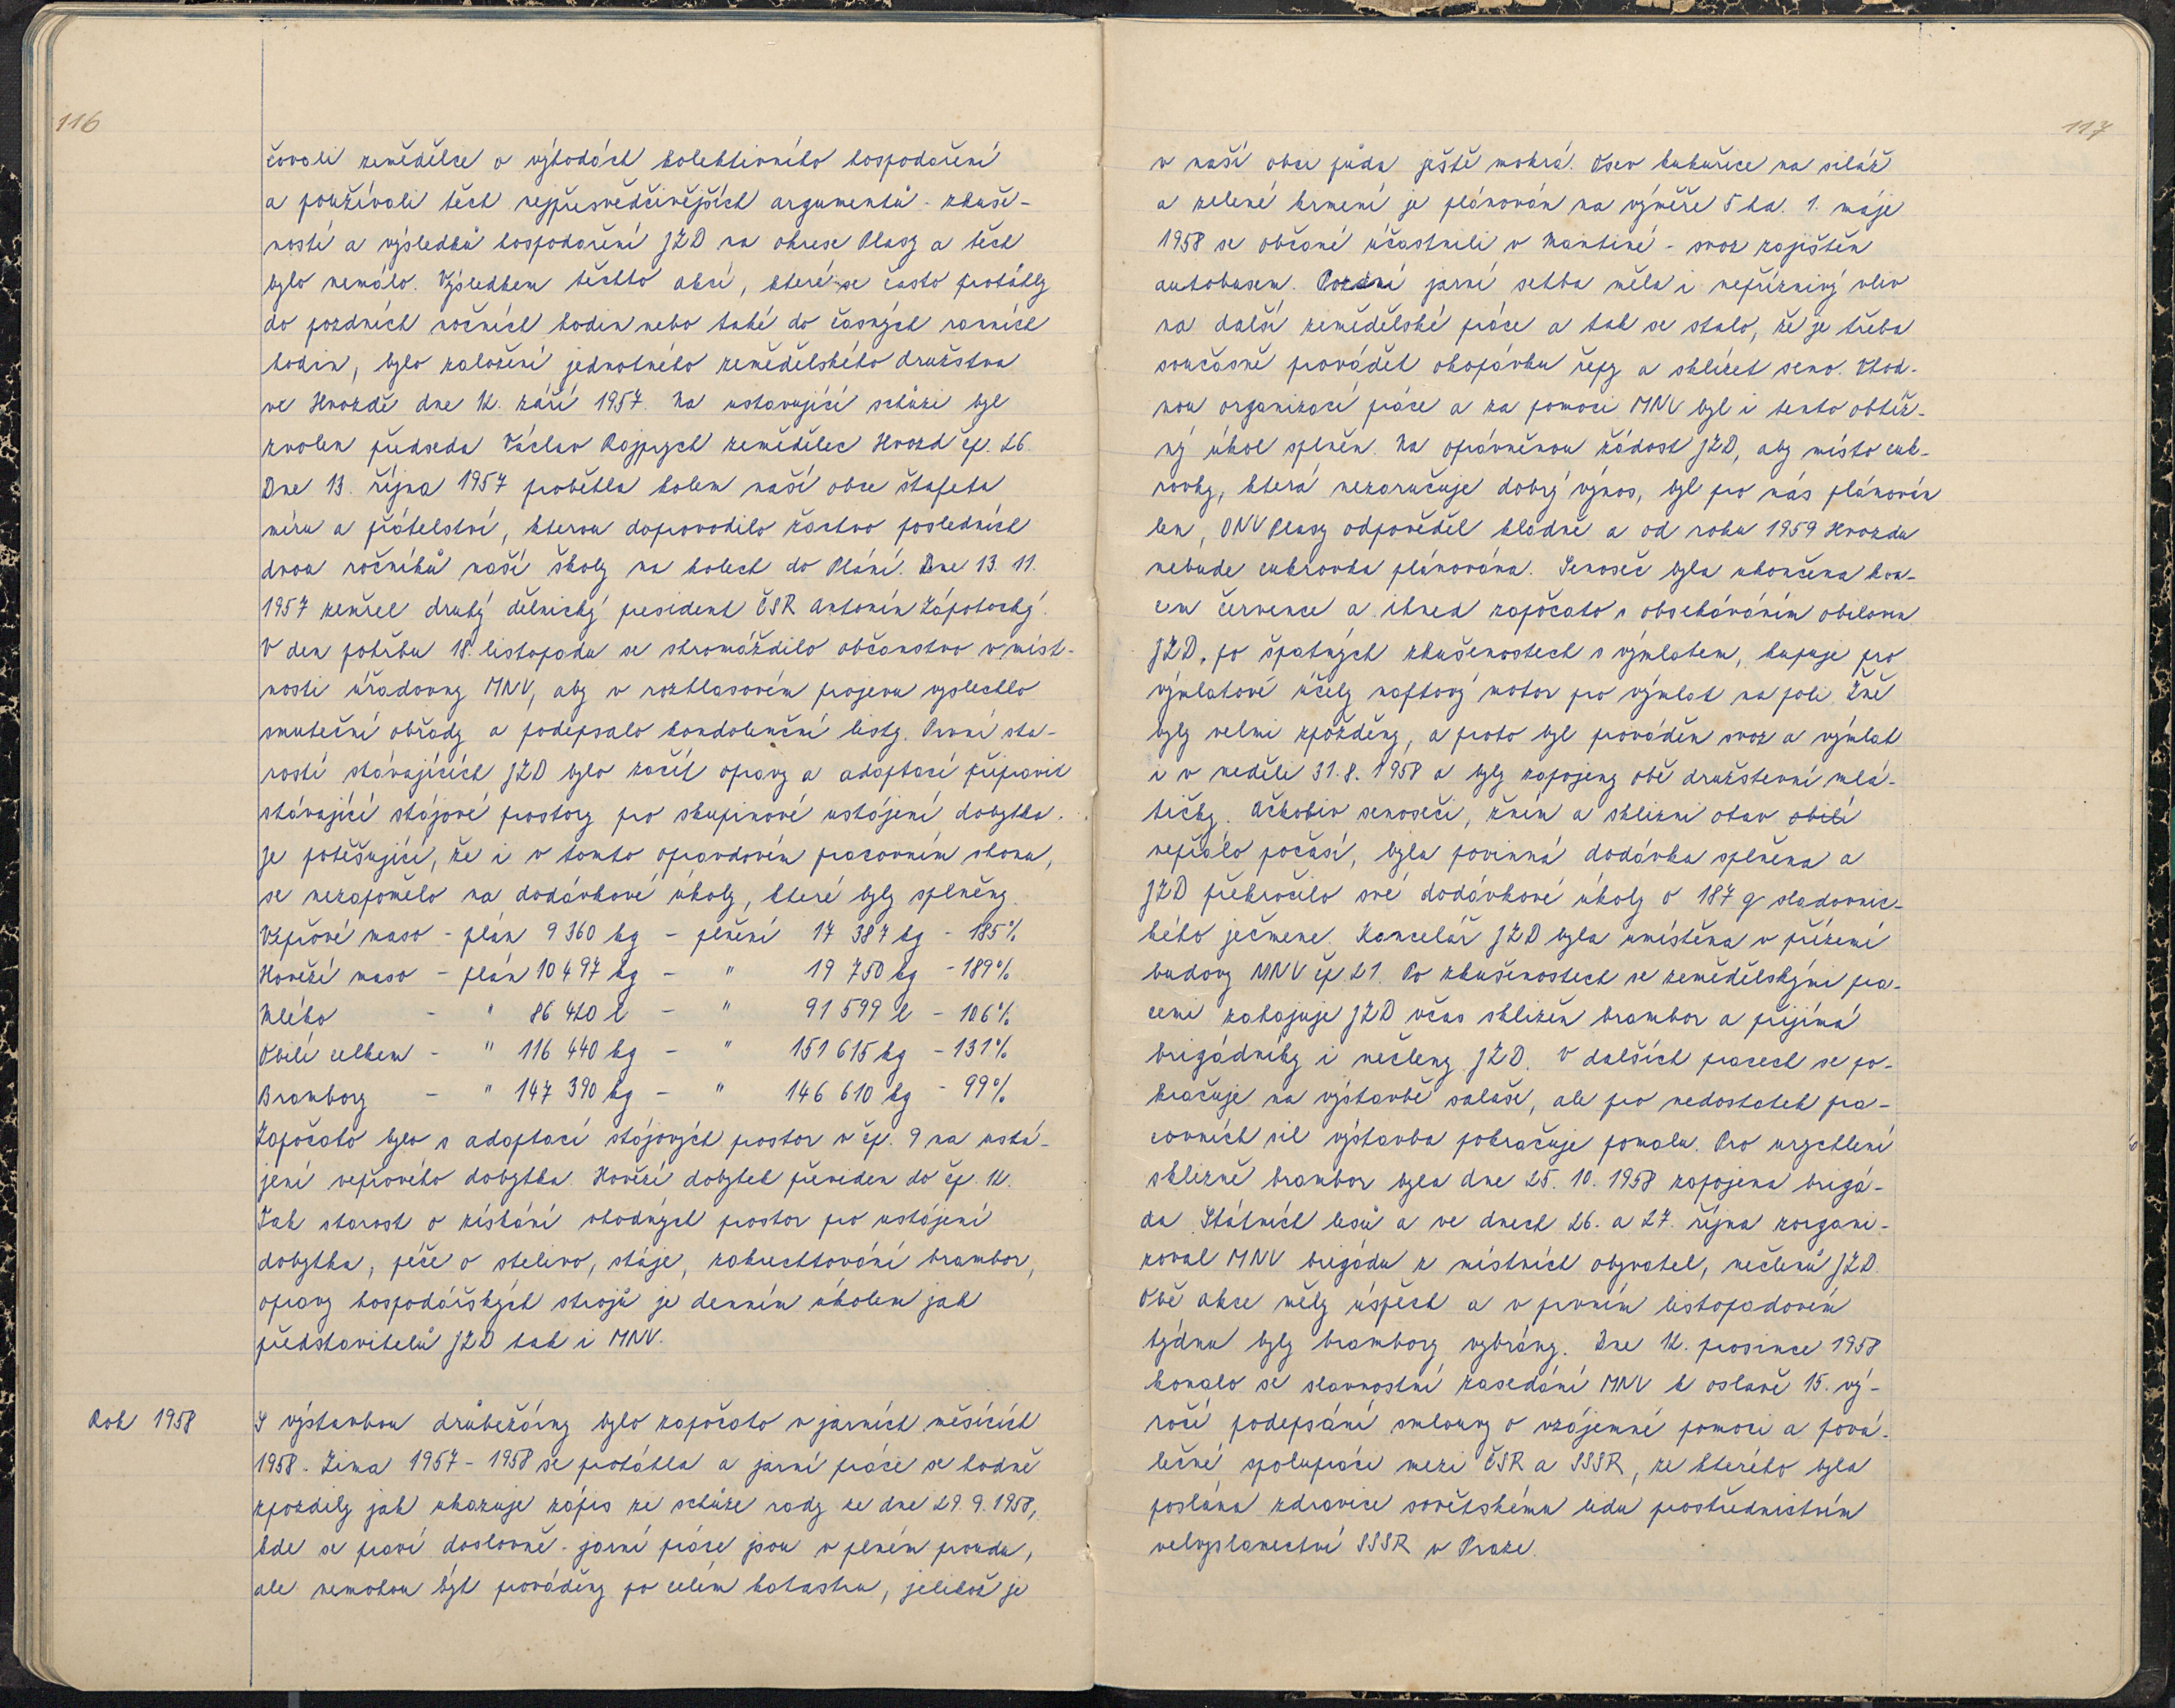 116
čovali zemědělce o výhodách kolektivního hospodaření
a používali těch nejpřesvědčivějších argumentů - zkuše-
ností a výsledků hospodaření JZD na okrese Plasy a těch
bylo nemálo. Výsledkem těchto akcí, které se často protáhly
do pozdních nočních hodin nebo také do časných ranních
hodin, bylo založení jednotného zemědělského družstva
ve Hvozdě dne 12. září 1957. Na ustavující schůzi byl
zvolen předseda Václav Rajprych zemědělec Hvozd čp. 26.
Dne 13. října 1957 proběhla kolem naší obce štafeta
míru a přátelství, kterou doprovodilo žactvo posledních
dvou ročníků naší školy na kolech do Plání. Dne 13. 11.
1957 zemřel druhý dělnický president ČSR Antonín Zápotocký.
V den pohřbu 18. listopadu se shromáždilo občanstvo v míst-
nosti úřadovny MNV, aby v rozhlasovém projevu vyslechlo
smuteční obřady a podepsalo kondolenční listy. První sta-
rostí stávajících JZD bylo začít opravy a adaptací připravit
stávající stájové prostory pro skupinové ustájení dobytka.
Je potěšující, že i v tomto opravdovém pracovním shonu,
se nezapomělo na dodávkové úkoly, které byly splněny.
Vepřové maso - plán 9 360 kg - plnění 17 387 kg - 185%
Hovězí maso - plán 10 497 kg - " 19 750 kg - 189%
Mléko - " 86 420 l - " 91 599 l - 106%
Obilí celkem - " 116 440 kg - " 151 615 kg - 131%
Brambory - " 147 390 kg - " 146 610 kg - 99%
Započato bylo s adaptací stájových prostor v čp. 9 na ustá-
jení vepřového dobytka. Hovězí dobytek převeden do čp. 12.
Tak starost o získání vhodných prostor pro ustájení
dobytka, péče o stelivo, stáje, zakrechtování brambor,
opravy hospodářských strojů je denním úkolem jak
představitelů JZD tak i MNV.
Rok 1958
S výstavbou drůbežárny bylo započato v jarních měsících
1958. Zima 1957 - 1958 se protáhla a jarní práce se hodně
zpozdily jak ukazuje zápis ze schůze rady ze dne 29. 9. 1958,
kde se praví doslovně - jarní práce jsou v plném proudu,
ale nemohou být prováděny po celém katastru, jelikož je
117
v naší obci půda ještě mokrá. Osev kukuřice na siláž
a zelené krmení je plánován na výměře 5 ha. 1. máje
1958 se občané účastnili v Mantině - svoz zajištěn
autobusem. Pozdní jarní setba měla i nepříznivý vliv
na další zemědělské práce a tak se stalo, že je třeba
současně provádět okopávku řepy a sklízet seno. Vhod-
nou organizací práce a za pomoci MNV byl i tento obtíž-
ný úkol splněn. Na oprávněnou žádost JZD, aby místo cuk-
rovky, která nezaručuje dobrý výnos, byl pro nás plánován
len, ONV Plasy odpověděl kladně a od roku 1959 Hvozdu
nebude cukrovka plánována. Senoseč byla ukončena kon-
cem července a ihned započato s obsekáváním obilovin
JZD, po špatných zkušenostech s výmlatem, kupuje pro
výmlatové účely naftový motor pro výmlat na poli. Žně
byly velmi zpožděny, a proto byl prováděn svoz a výmlat
i v neděli 31. 8. 1958 a byly zapojeny obě družstevní mlá-
tičky. Ačkoliv senoseči, žním a sklizni otav obilí
nepřálo počasí, byla povinná dodávka splněna a
JZD překročilo své dodávkové úkoly o 187 q sladovnic-
kého ječmene. Kancelář JZD byla umístěna v přízemí
budovy MNV čp 21. Po zkušenostech se zemědělskými pra-
cemi zahajuje JZD včas sklizeň brambor a přijímá
brigádníky i nečleny JZD. V dalších pracech se po-
kračuje na výstavbě salaše, ale pro nedostatek pra-
covních sil výstavba pokračuje pomalu. Pro urychlení
sklizně brambor byla dne 25. 10. 1958 zapojena brigá-
da Státních lesů a ve dnech 26. a 27. října zorgani-
zoval MNV brigádu z místních obyvatel, nečlenů JZD.
Obě akce měly úspěch a v prvním listopadovém
týdnu byly brambory vybrány. Dne 12. prosince 1958
konalo se slavnostní zasedání MNV k oslavě 15. vý-
ročí podepsání smlouvy o vzájemné pomoci a pová-
lečné spolupráci mezi ČSR a SSSR, ze kterého byla
poslána zdravice sovětskému lidu prostřednictvím
velvyslanectví SSSR v Praze.